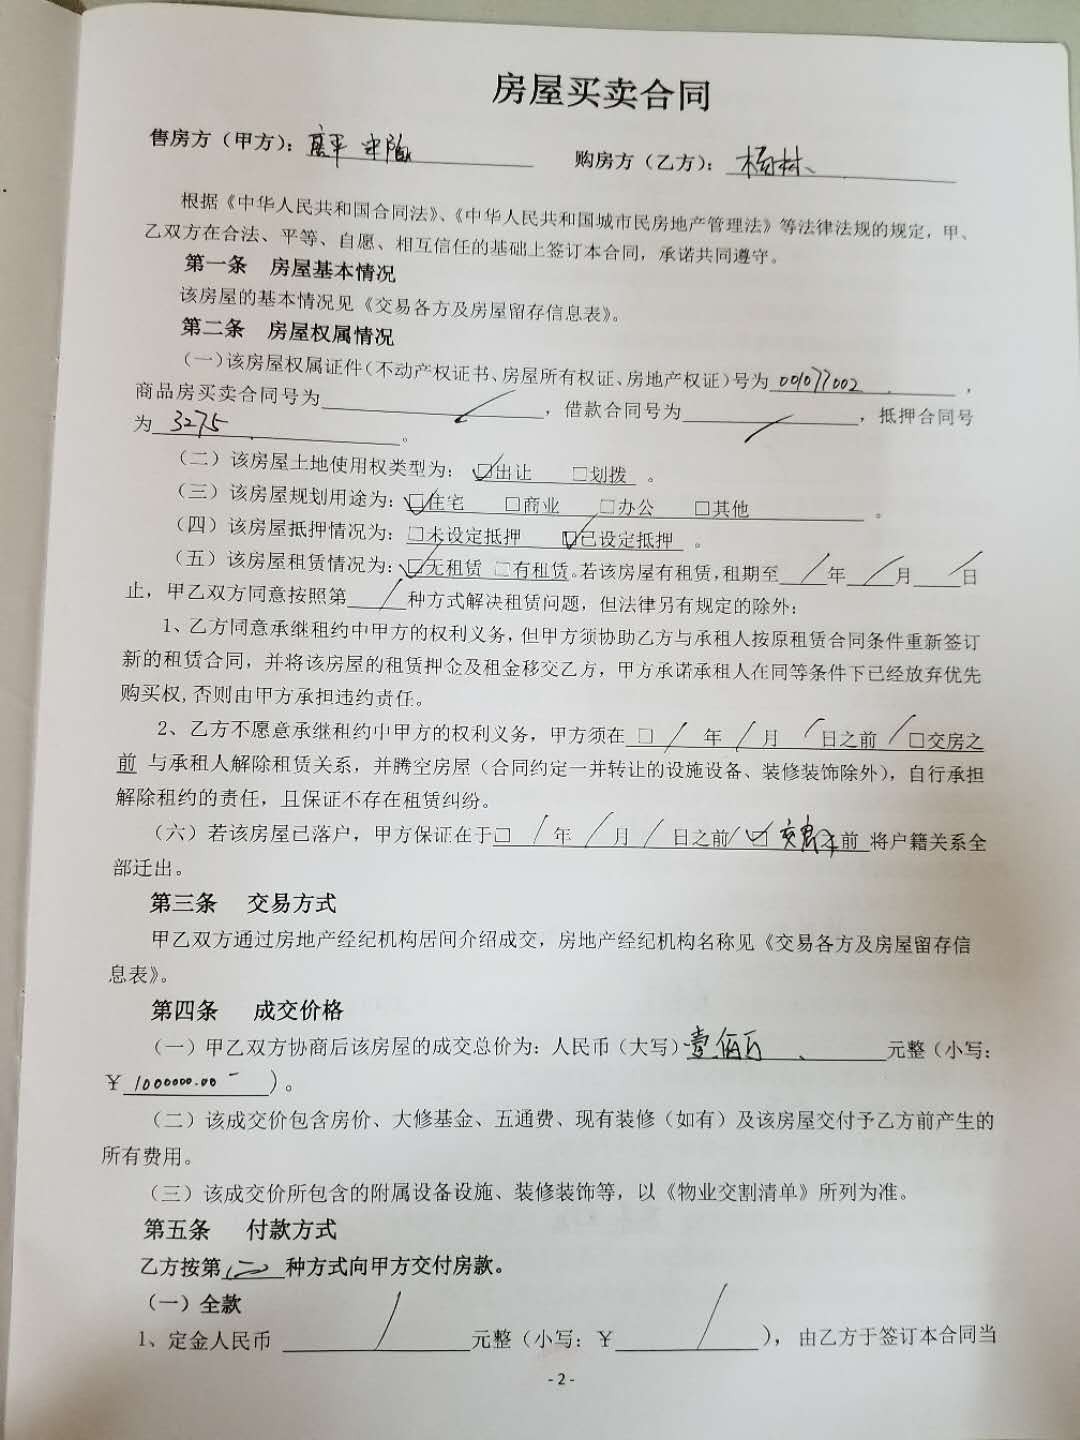 房屋买卖合同
售房方（甲方）： 购房方（乙方）：杨林
根据《中华人民共和国合同法》、《中华人民共和国城市民房地产管理法》等法律法规的规定，甲、
乙双方在合法、平等、自愿、相互信任的基础上签订本合同，承诺共同遵守。
第一条 房屋基本情况
该房屋的基本情况见《交易各方及房屋留存信息表》。
第二条 房屋权属情况
（一）该房屋权属证件（不动产权证书、房屋所有权证、房地产权证）号为001077002，
商品房买卖合同号为／，借款合同号为／，抵押合同号
为3275。
（二）该房屋土地使用权类型为：☑出让 □划拨。
（三）该房屋规划用途为：☑住宅 □商业 □办公 □其他。
（四）该房屋抵押情况为：□未设定抵押 ☑已设定抵押。
（五）该房屋租赁情况为：☑无租赁 □有租赁。若该房屋有租赁，租期至／年／月／日
止，甲乙双方同意按照第／种方式解决租赁问题，但法律另有规定的除外：
1、乙方同意承继租约中甲方的权利义务，但甲方须协助乙方与承租人按原租赁合同条件重新签订
新的租赁合同，并将该房屋的租赁押金及租金移交乙方，甲方承诺承租人在同等条件下已经放弃优先
购买权，否则由甲方承担违约责任。
2、乙方不愿意承继租约中甲方的权利义务，甲方须在□／年／月／日之前／□交房之
前 与承租人解除租赁关系，并腾空房屋（合同约定一并转让的设施设备、装修装饰除外），自行承担
解除租约的责任，且保证不存在租赁纠纷。
（六）若该房屋已落户，甲方保证在于□／年／月／日之前／☑前 将户籍关系全
部迁出。
第三条 交易方式
甲乙双方通过房地产经纪机构居间介绍成交，房地产经纪机构名称见《交易各方及房屋留存信
息表》。
第四条 成交价格
（一）甲乙双方协商后该房屋的成交总价为：人民币（大写）壹佰万元整（小写：
￥1000000.00）。
（二）该成交价包含房价、大修基金、五通费、现有装修（如有）及该房屋交付予乙方前产生的
所有费用。
（三）该成交价所包含的附属设备设施、装修装饰等，以《物业交割清单》所列为准。
第五条 付款方式
乙方按第（二）种方式向甲方交付房款。
（一）全款
1、定金人民币／元整（小写：￥／），由乙方于签订本合同当
- 2 -